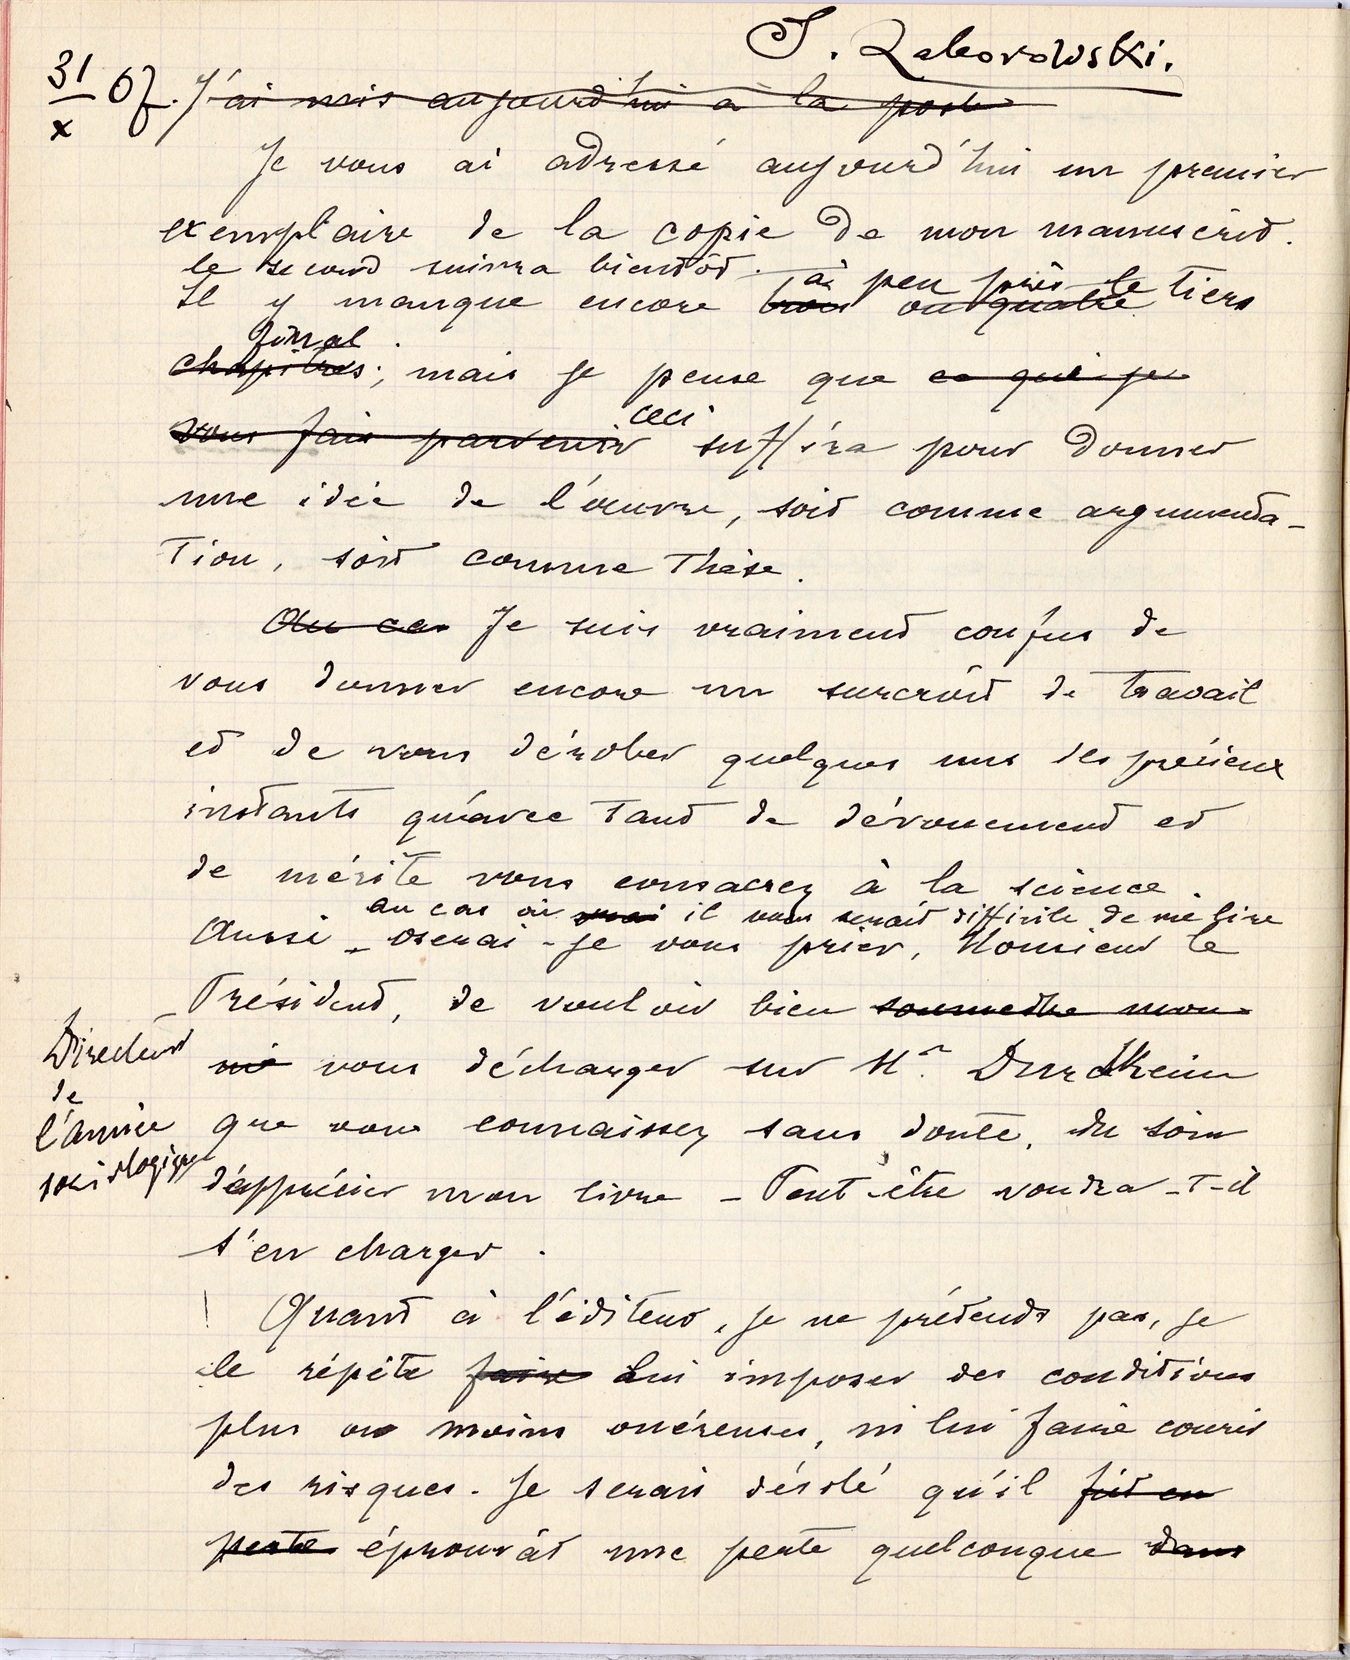 S. Zaborowski.
31/x 07. J'ai mis aujourd'hui à la poste
Je vous ai adressé aujourd'hui un premier
exemplaire de la copie de mon manuscrit.
le second suivra bientôt.
à peu près le tiers
Il y manque encore trois ou quatre
final.
chapitres; mais je pense que ce que je
ceci
vous fais parvenir suffira pour donner
une idée de l'œuvre, soit comme argumenta-
tion, soit comme thèse.
Au cas Je suis vraiment confus de
vous donner encore un surcroît de travail
et de vous dérober quelques uns des précieux
instants qu'avec tant de dévouement et
de mérite vous consacrez à la science.
au cas où il vous serait difficile de me lire
Aussi - oserai-je vous prier, Monsieur le
Président, de vouloir bien soumettre mon
vous décharger sur Mr. Durdkheim
Directeur
de
l'année
sociologique
que vous connaissez sans doute, du soin
d'apprécier mon livre - Peut-être voudra-t-il
s'en charger.
Quant à l'éditeur, je ne prétends pas, je
le répète faire lui imposer des conditions
plus ou moins onéreuses, ni lui faire courir
des risques. Je serais désolé qu'il fût en
perte éprouvât une perte quelconque dans